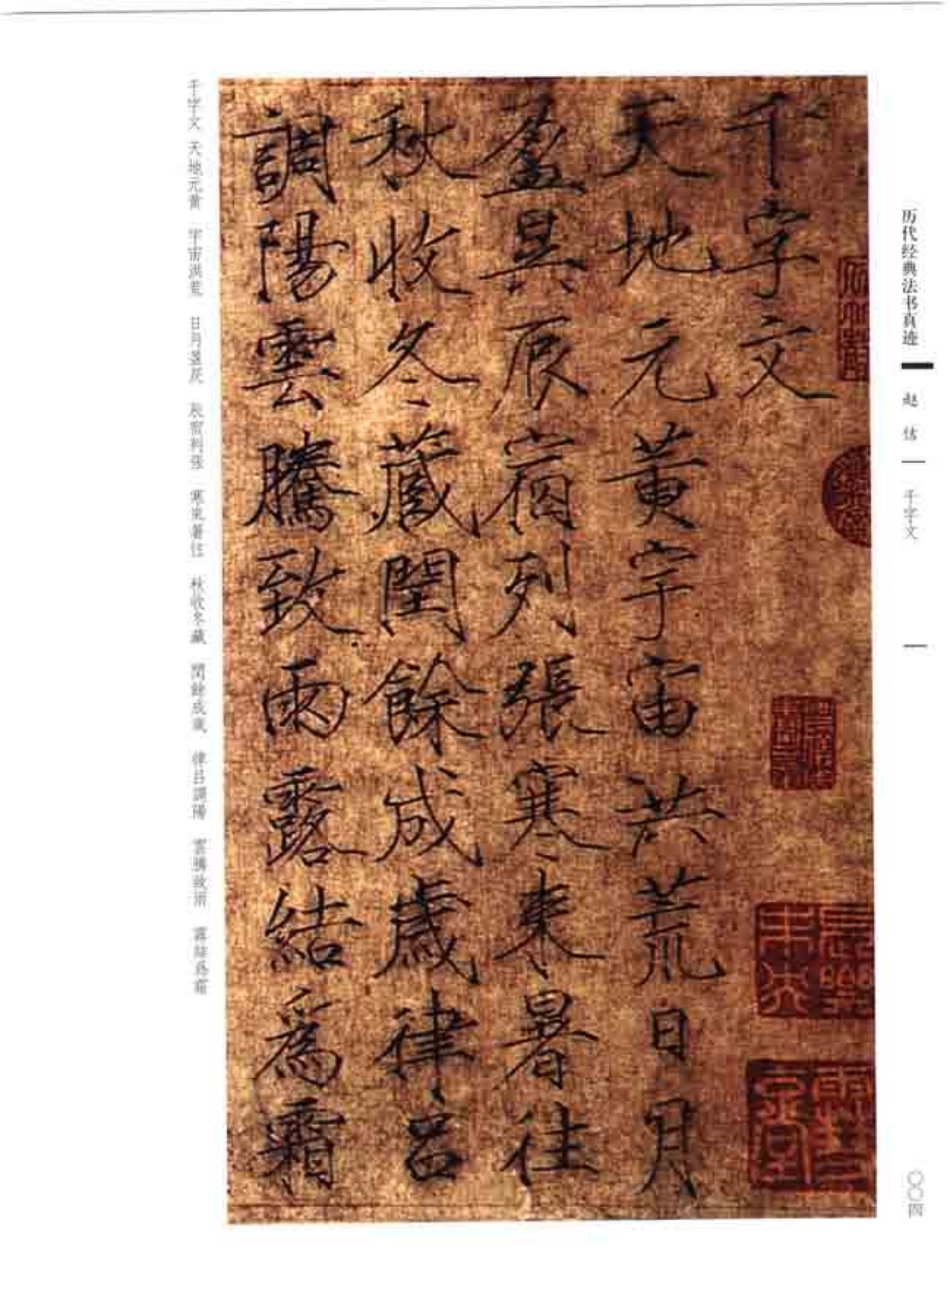 历代经典法书真迹
赵佶
千字文
〇〇四
千字文
天地元黄宇宙洪荒日月
盈昃辰宿列張寒来暑往
秋收冬藏閏餘成歲律呂
調陽雲騰致雨露結爲霜
千字文 天地元黄 宇宙洪荒 日月盈昃 辰宿列張 寒來暑往 秋收冬藏 閏餘成歲 律吕調陽 雲騰致雨 露結爲霜